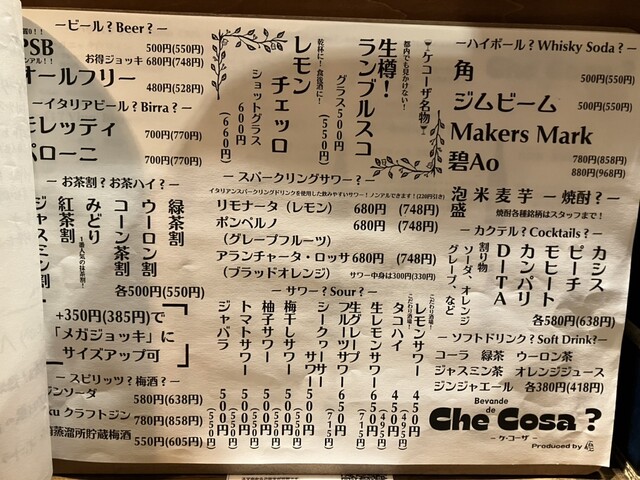 ービール？Beer？ー
PSB
500円(550円)
お得ジョッキ 680円(748円)
オールフリー
480円(528円)
ーイタリアビール？Birra？ー
モレッティ
700円(770円)
ペローニ
700円(770円)
ーお茶割？お茶ハイ？ー
緑茶割
ウーロン割
コーン茶割
みどり
紅茶割
ジャスミン割
各500円(550円)
+350円(385円)で
「メガジョッキ」に
サイズアップ可
ースピリッツ？梅酒？ー
ジンソーダ
580円(638円)
クラフトジン
780円(858円)
蒸溜所貯蔵梅酒
550円(605円)
ケコーザ名物
都内でも見かけない！
生樽！
ランブルスコ
グラス500円
(550円)
乾杯に！食後酒に！
レモン
チェッロ
ショットグラス
600円
(660円)
ースパークリングサワー？ー
イタリアンスパークリングドリンクを使用した飲みやすいサワー！ノンアルできます！(220円引き)
リモナータ（レモン） 680円 (748円)
ポンペルノ 680円 (748円)
（グレープフルーツ）
アランチャータ・ロッサ 680円 (748円)
（ブラッドオレンジ） サワー中身は300円(330円)
ーサワー？Sour？ー
こだわり酒場！
レモンサワー 450円(495円)
こだわり酒場！
タコハイ 450円(495円)
生レモンサワー 650円(715円)
生グレープ
フルーツサワー 650円(715円)
シークヮーサー
サワー 500円(550円)
梅干しサワー 500円(550円)
柚子サワー 500円(550円)
トマトサワー 500円(550円)
ジャバラ 500円(550円)
ーハイボール？Whisky Soda？ー
角
500円(550円)
ジムビーム
500円(550円)
Makers Mark
780円(858円)
碧Ao
880円(968円)
ー焼酎？ー
芋
麦
米
泡盛
焼酎各種銘柄はスタッフまで！
ーカクテル？Cocktails？ー
カシス
ピーチ
モヒート
カンパリ
DITA
割り物
ソーダ、オレンジ
グレープ、など
各580円(638円)
ーソフトドリンク？Soft Drink？ー
コーラ 緑茶 ウーロン茶
ジャスミン茶 オレンジジュース
ジンジャエール 各380円(418円)
Bevande
de
Che Cosa ?
ーケ・コーザー
Produced by